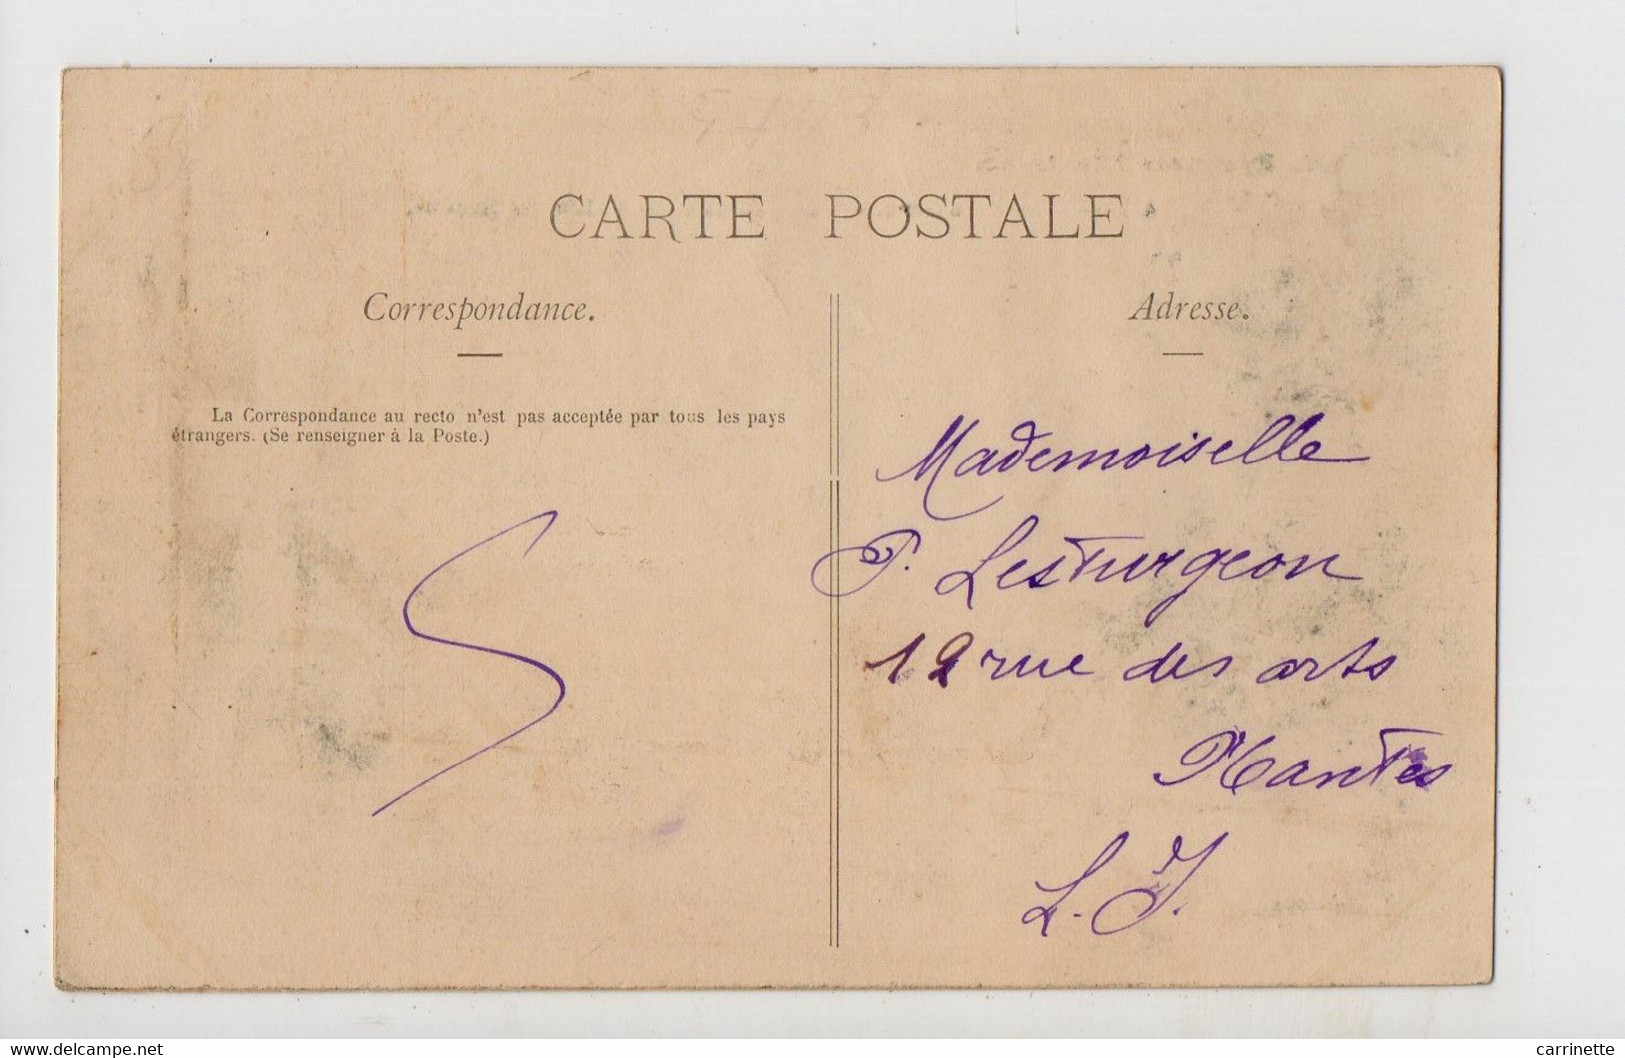 CARTE POSTALE
Correspondance.
La Correspondance au recto n'est pas acceptée par tous les pays
étrangers. (Se renseigner à la Poste.)
Adresse.
Mademoiselle
P. Lesturgeon
12 rue des arts
Nantes
L. I.
www.delcampe.net
carrinette